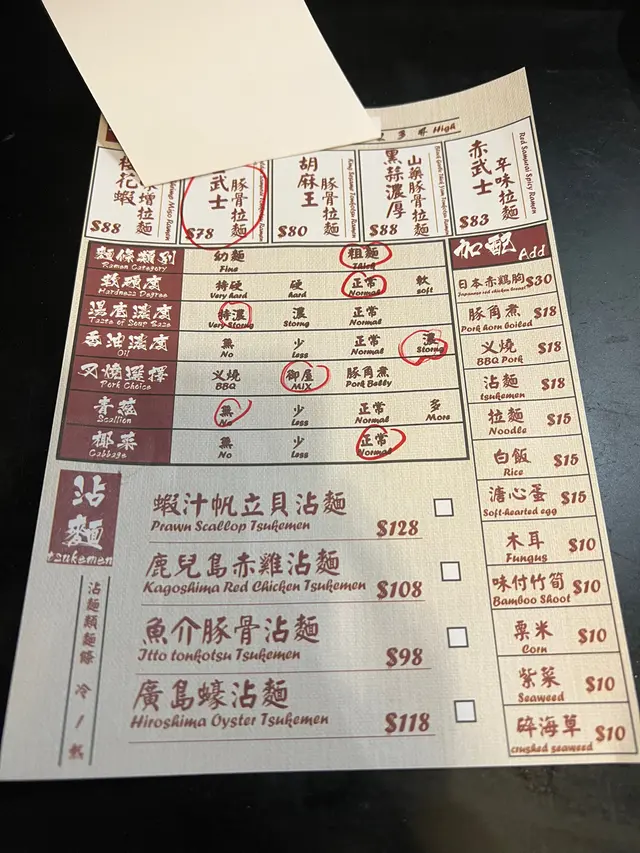 多 昇 High
味噌拉麵
花蝦
$88
武士
豚骨拉麵
$78
胡麻王
豚骨拉麵
$80
黑蒜濃厚
山藥豚骨拉麵
$88
赤武士
辛味拉麵
Red Samurai Spicy Ramen
$83
麵條類別
Ramen Category
幼麵
Fine
粗麵
Thick
軟硬度
Hardness Degree
特硬
Very hard
硬
hard
正常
Normal
軟
soft
湯底濃度
Taste of Soup Base
特濃
Very Storng
濃
Storng
正常
Normal
香油濃度
Oil
無
No
少
Less
正常
Normal
濃
Storng
叉燒選擇
Pork Choice
叉燒
BBQ
御屋
MIX
豚角煮
Pork Belly
青蔥
Scallion
無
No
少
Less
正常
Normal
多
More
椰菜
Cabbage
無
No
少
Less
正常
Normal
加配 Add
日本赤鶏胸 $30
Japanese red chicken breast
豚角煮 $18
Pork horn boiled
叉燒 $18
BBQ Pork
沾麵 $18
tsukemen
拉麵 $15
Noodle
白飯 $15
Rice
溏心蛋 $15
Soft-hearted egg
木耳 $10
Fungus
味付竹筍 $10
Bamboo Shoot
粟米 $10
Corn
紫菜 $10
Seaweed
碎海草 $10
crushed seaweed
沾麵
tsukemen
沾麵類麵條 冷 / 熱
蝦汁帆立貝沾麵
Prawn Scallop Tsukemen $128
鹿兒島赤雞沾麵
Kagoshima Red Chicken Tsukemen $108
魚介豚骨沾麵
Itto tonkotsu Tsukemen $98
廣島蠔沾麵
Hiroshima Oyster Tsukemen $118